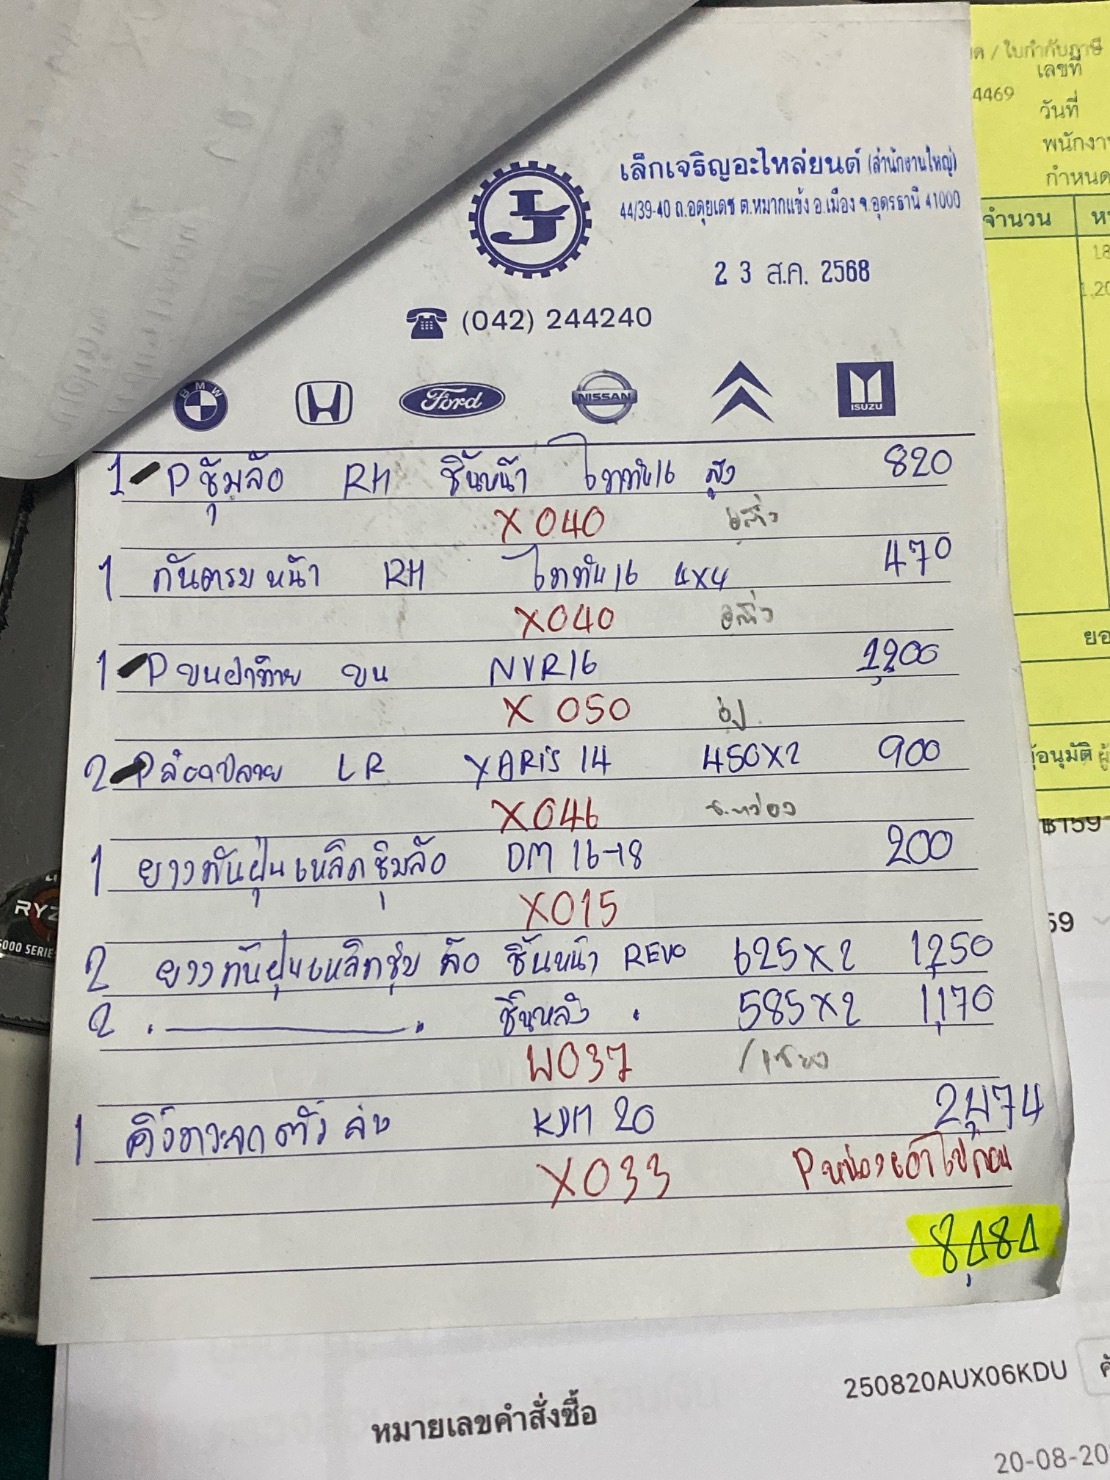 ด / ใบกำกับภาษี
เลขที่
4469
วันที่
พนักงาน
กำหนด
จำนวน
เล็กเจริญอะไหล่ยนต์ (สำนักงานใหญ่)
44/39-40 ถ.อดุยเดช ต.หมากแข้ง อ.เมือง จ.อุดรธานี 41000
2 3 ส.ค. 2568
(042) 244240
BMW
Ford
NISSAN
ISUZU
1 P ซุ้มล้อ RH ชิ้นหน้า ไททัน16 สูง 820
X040
1 กันตรบหน้า RH ไททัน16 4x4 470
X040
1 P ขนฝาท้าย บน NVR16 1,200
X 050
2 P ล้อ LR YARIS 14 450x2 900
X046
1 ยางกันฝุ่นเหล็กซุ้มล้อ DM 16-18 200
X015
2 ยางกันฝุ่นเหล็กซุ้มล้อ ชิ้นหน้า REVO 625x2 1,250
2 ชิ้นหลัง 585x2 1,170
W037
1 คิ้ว ล่าง KDM 20 2,474
X033 P หน่องเอาไปก่อน
8,484
ยอ
ผู้อนุมัติ
฿159
59
RYZ
5000 SERIE
หมายเลขคำสั่งซื้อ 250820AUX06KDU
20-08-20